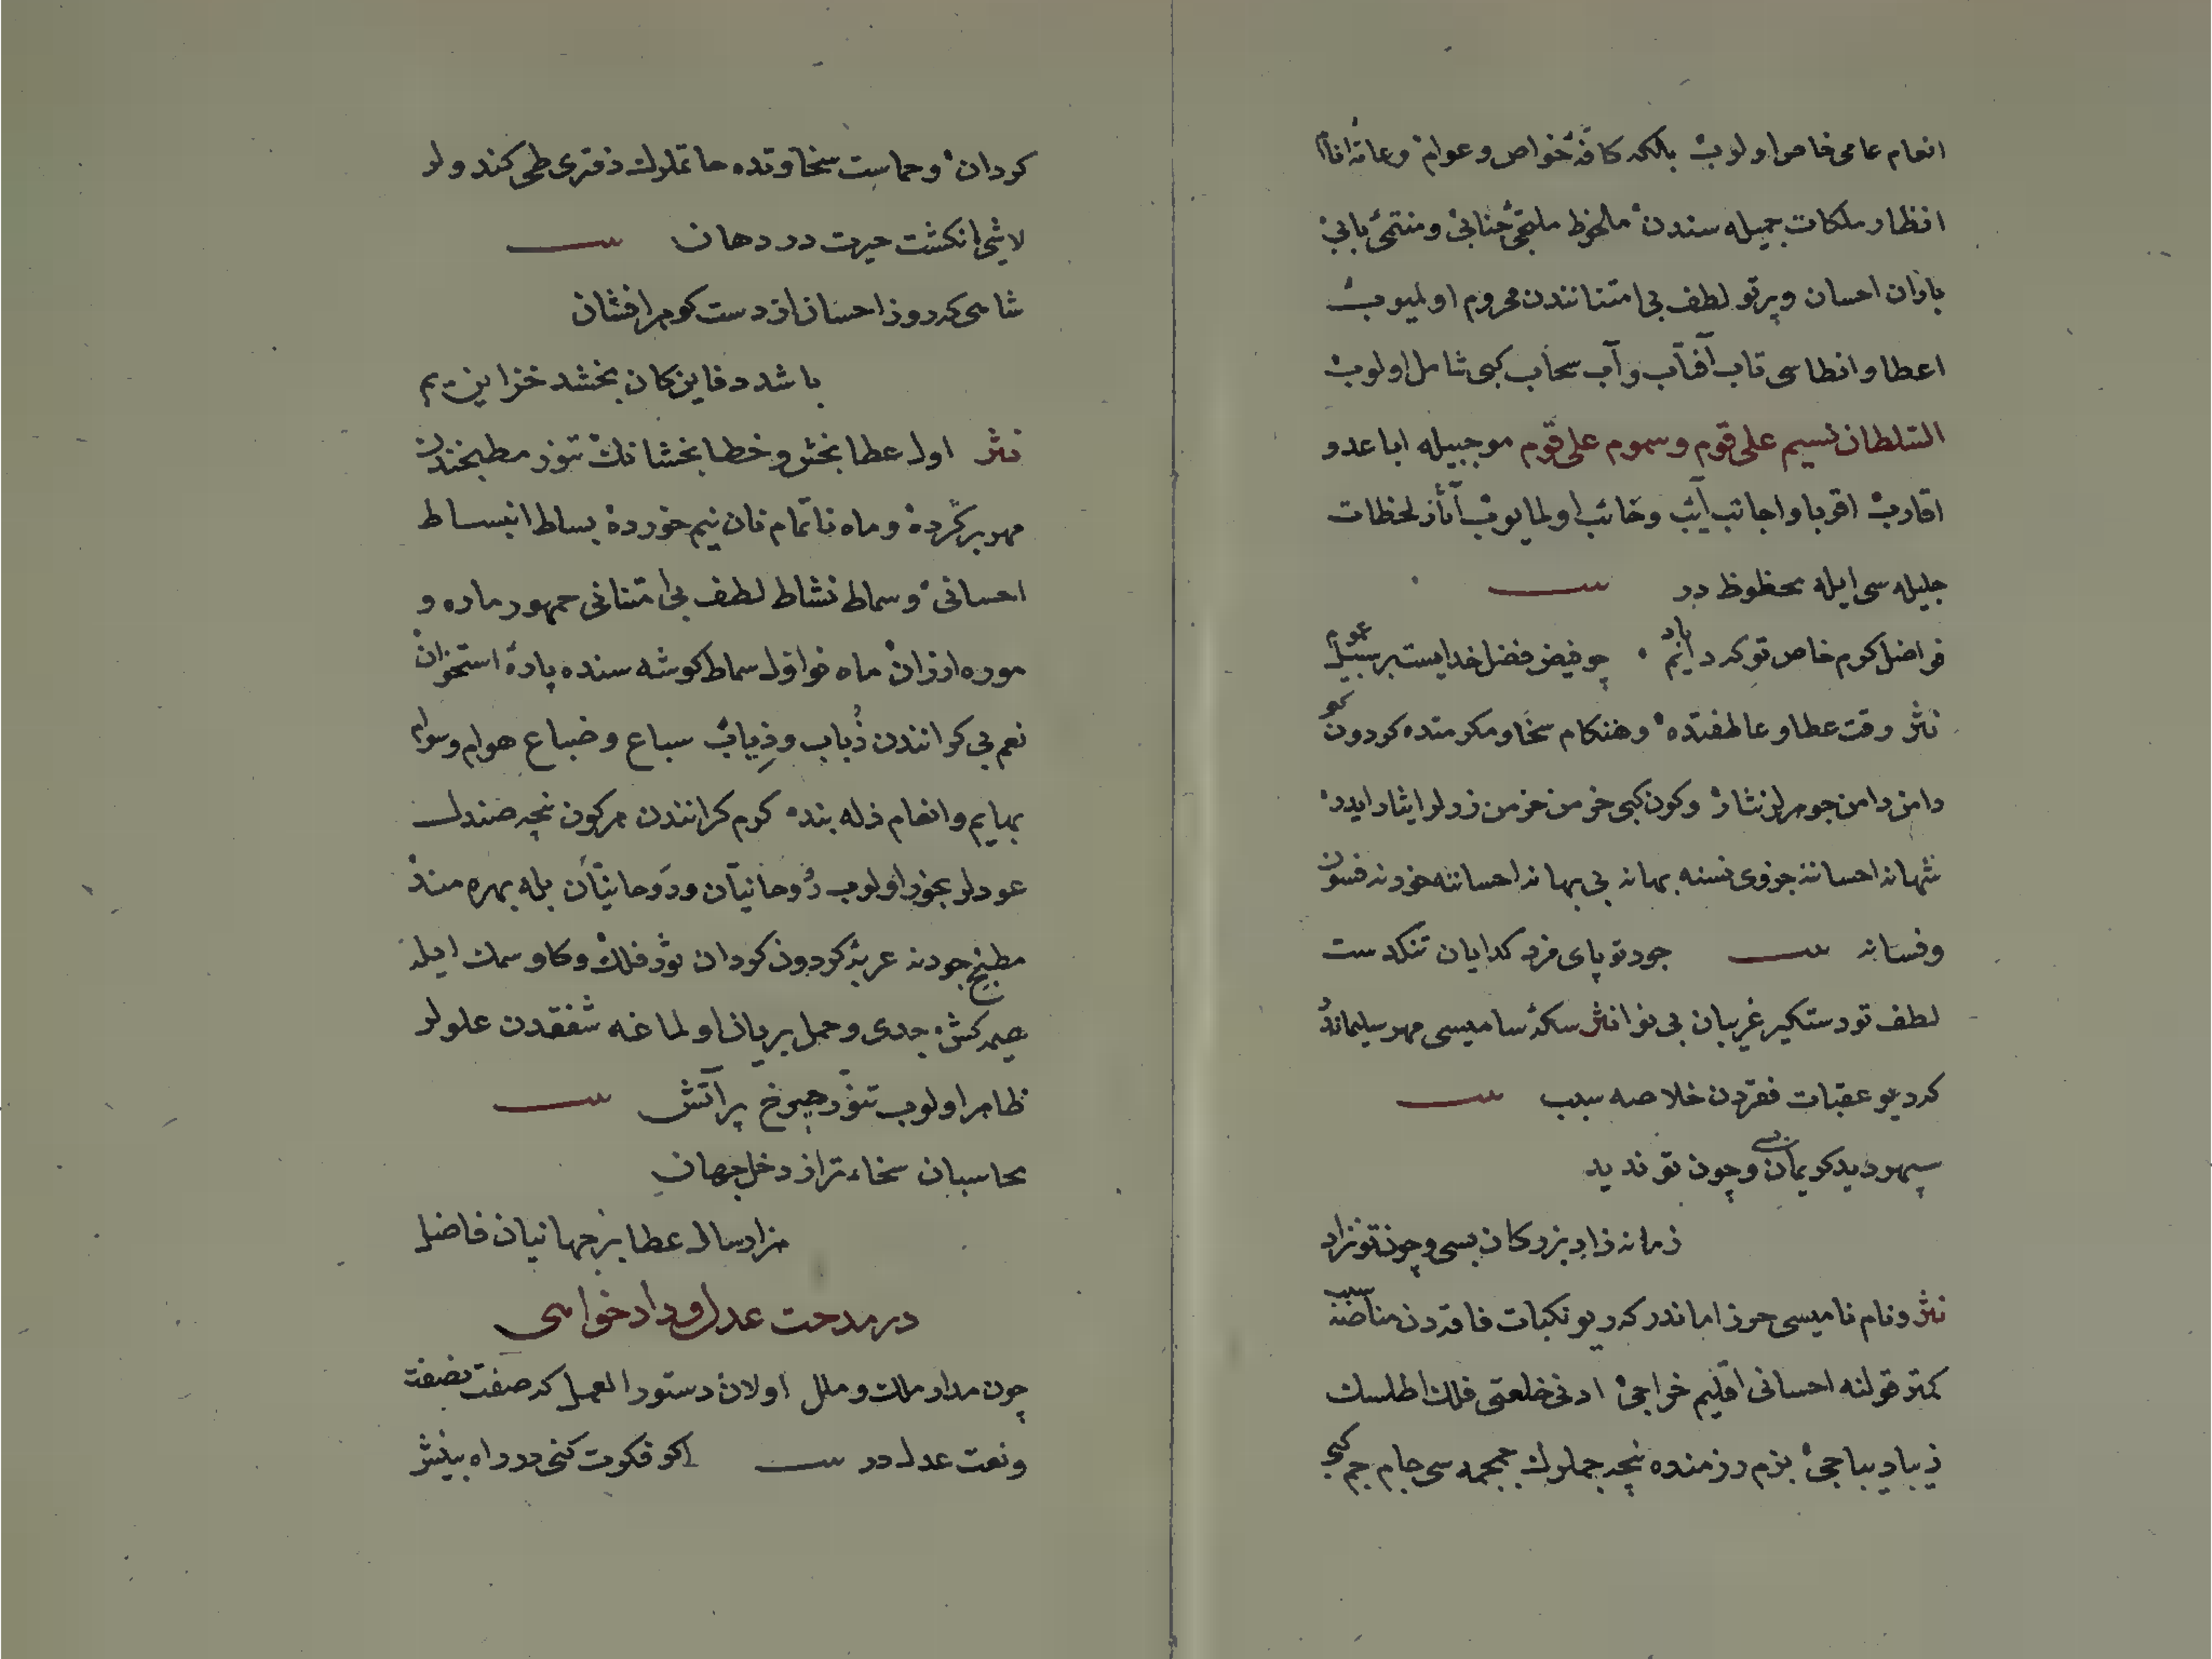 انعام عامی خاص اولوب بلکه کافهٔ خواص و عوام و عامهٔ انام
انظار ملکات جمیله سندن ملحوظ ملتجئ جنابی و منتمئ بابی
باران احسان و پرتو لطف بی امتنانندن محروم اولمیوب
اعطا و انطاسی تاب آفتاب و آب سحاب کبی شامل اولوب
السلطان نسیم علی قوم و سموم علی قوم موجبیله اباعد و
اقارب اقربا و اجانب آیب و خائب اولمایوب آثار لحظات
جلیله سی ایله محظوظ در
فواضل کرم خاص تو که دایم باد • چو فیض فضل خدایست بر سبیل عموم
نثر وقت عطا و عاطفتده و هنکام سخا و مکرمتده کردون کبی
دامن دامن جوهرلر نثار و کون کبی خرمن خرمن زرلر ایثار ایدر
شهانه احساننه جزوی نسنه بهانه بی بهانه احساننه خزنه فسون
و فسانه جود تو پای مزد کدایان تنکدست
لطف تو دستکیر غریبان بی نوا نثر سکهٔ سامیسی مهر سلیماندر
که دیو عقبات فقردن خلاصه سبب
سپهر دید کریمان بسی و چون تو ندید
زمانه زاد بزرکان بسی و چون تو نزاد
نثر و نام نامیسی حرز اماندر که دیو نکبات فاقه دن مناصه سبب
کمتر قولنه احسانی اقلیم خراجی ادنی خلعتی فلک اطلسک
زیبا دیباجی بزم رزمنده نیجه جملرک جمجمه سی جام جم کبی
کردان و حماست سخاوتده حاتملرک دفتری طی کندولر
لاشی انکشت حیرت در دهان
شاهی که روز احسان از دست کوهر افشان
باشد دفاین کان بخشد خزاین یم
نثر اول عطا بخش و خطا بخشانک تنور مطبخندن
مهر بر کرده و ماه ناتمام نان نیم خورده بساط انبساط
احسانی و سماط نشاط لطف بی امتنانی جمهور ماره و
موره ارزان ماه نوافل سماط کوشه سنده پارهٔ استخوان
نعم بی کرانندن ذباب و ذیاب سباع و ضباع هوام و سوام
بهایم و انعام ذله بنده کرم کرانندن هر کون نیجه صندل
عودلر بخور اولوب روحانیان و روحانیان بله بهره مند
مطبخ جودنه عربهٔ کردون کردان ثور فلک و کاو سمک ایله
هیمه کش جدی و حمل بریان اولماغه شفقدن علولر
ظاهر اولوب تنور چرخ پر آتش
محاسبان سخاء ترا ز دخل جهان
هزار ساله عطا بر جهانیان فاضل
در مدحت عدل و داد خواهی
چون مدار ملک و ملل اولان دستور العمل که صفت نصفت
و نعت عدل در اکر فکرت کنی در راه بینش